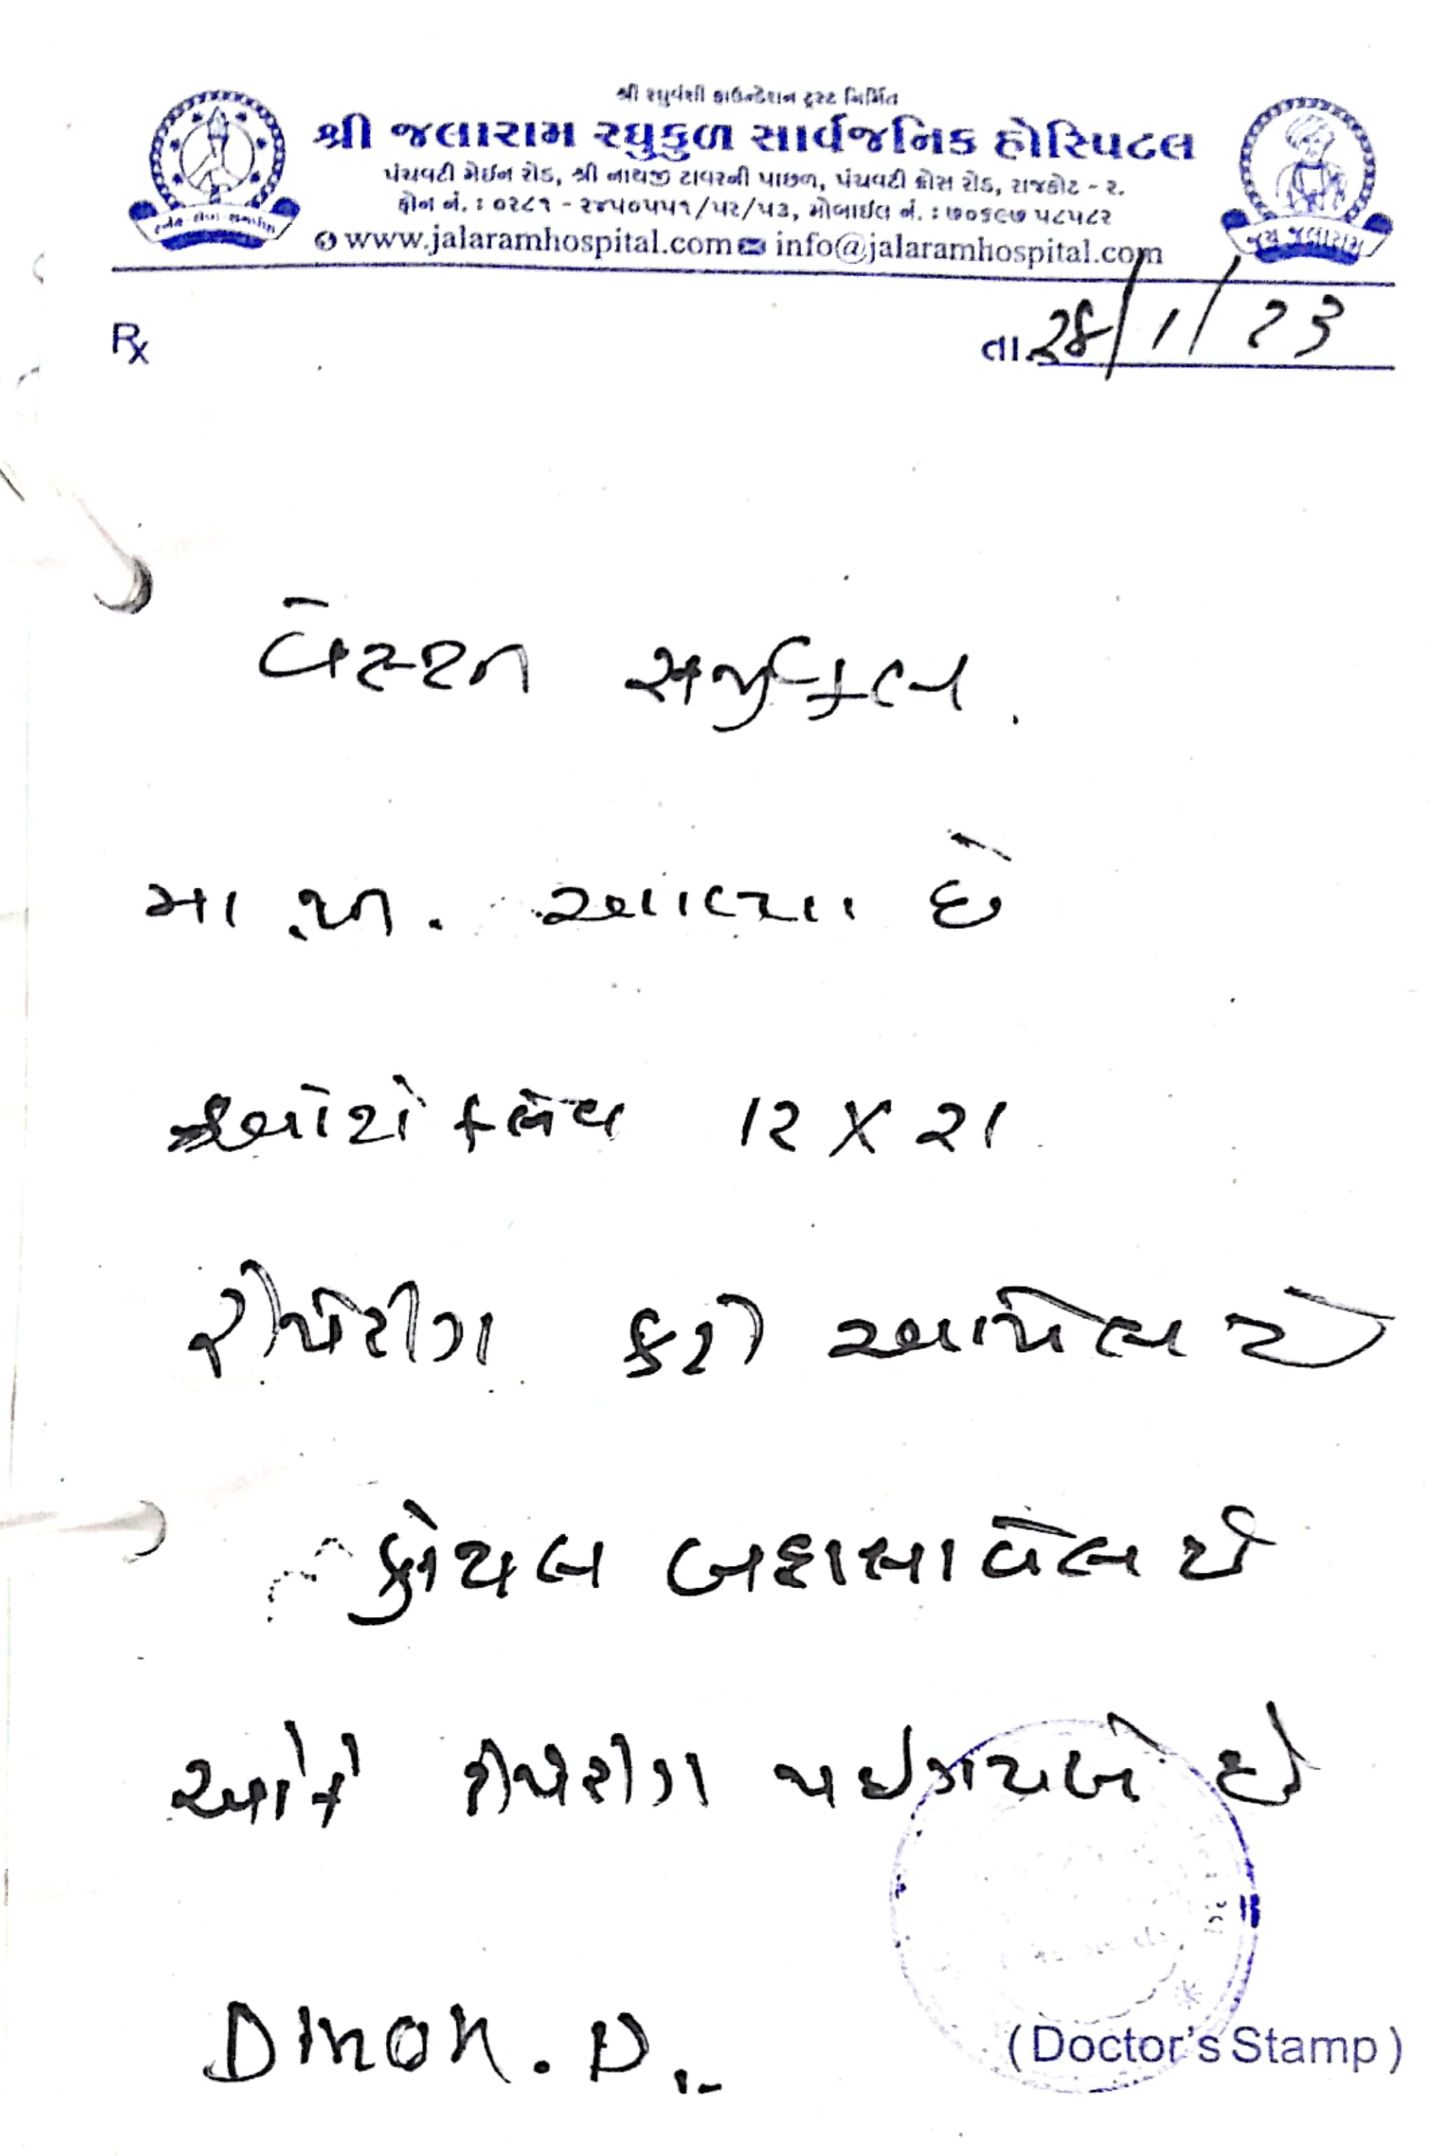 શ્રી રઘુવંશી ફાઉન્ડેશન ટ્રસ્ટ નિર્મિત
શ્રી જલારામ રઘુકુળ સાર્વજનિક હોસ્પિટલ
પંચવટી મેઈન રોડ, શ્રી નાથજી ટાવરની પાછળ, પંચવટી ક્રોસ રોડ, રાજકોટ - ૨.
ફોન નં. : ૦૨૮૧ - ૨૪૫૦૫૫૧/૫૨/૫૩, મોબાઈલ નં. : ૭૦૬૯૭ ૫૮૫૮૨
www.jalaramhospital.com info@jalaramhospital.com
જય જલારામ
Rx
તા. ૨૪/૧/૨૩
વેસ્ટન સર્જીકલ
મા. આવ્યા છે
ઓટોક્લેવ 12 X 21
રીપેરીંગ કરી આપેલ છે
કોયલ બદલાવેલ છે
અને રીપેરીંગ થઈ ગયેલ છે
(Doctor's Stamp)